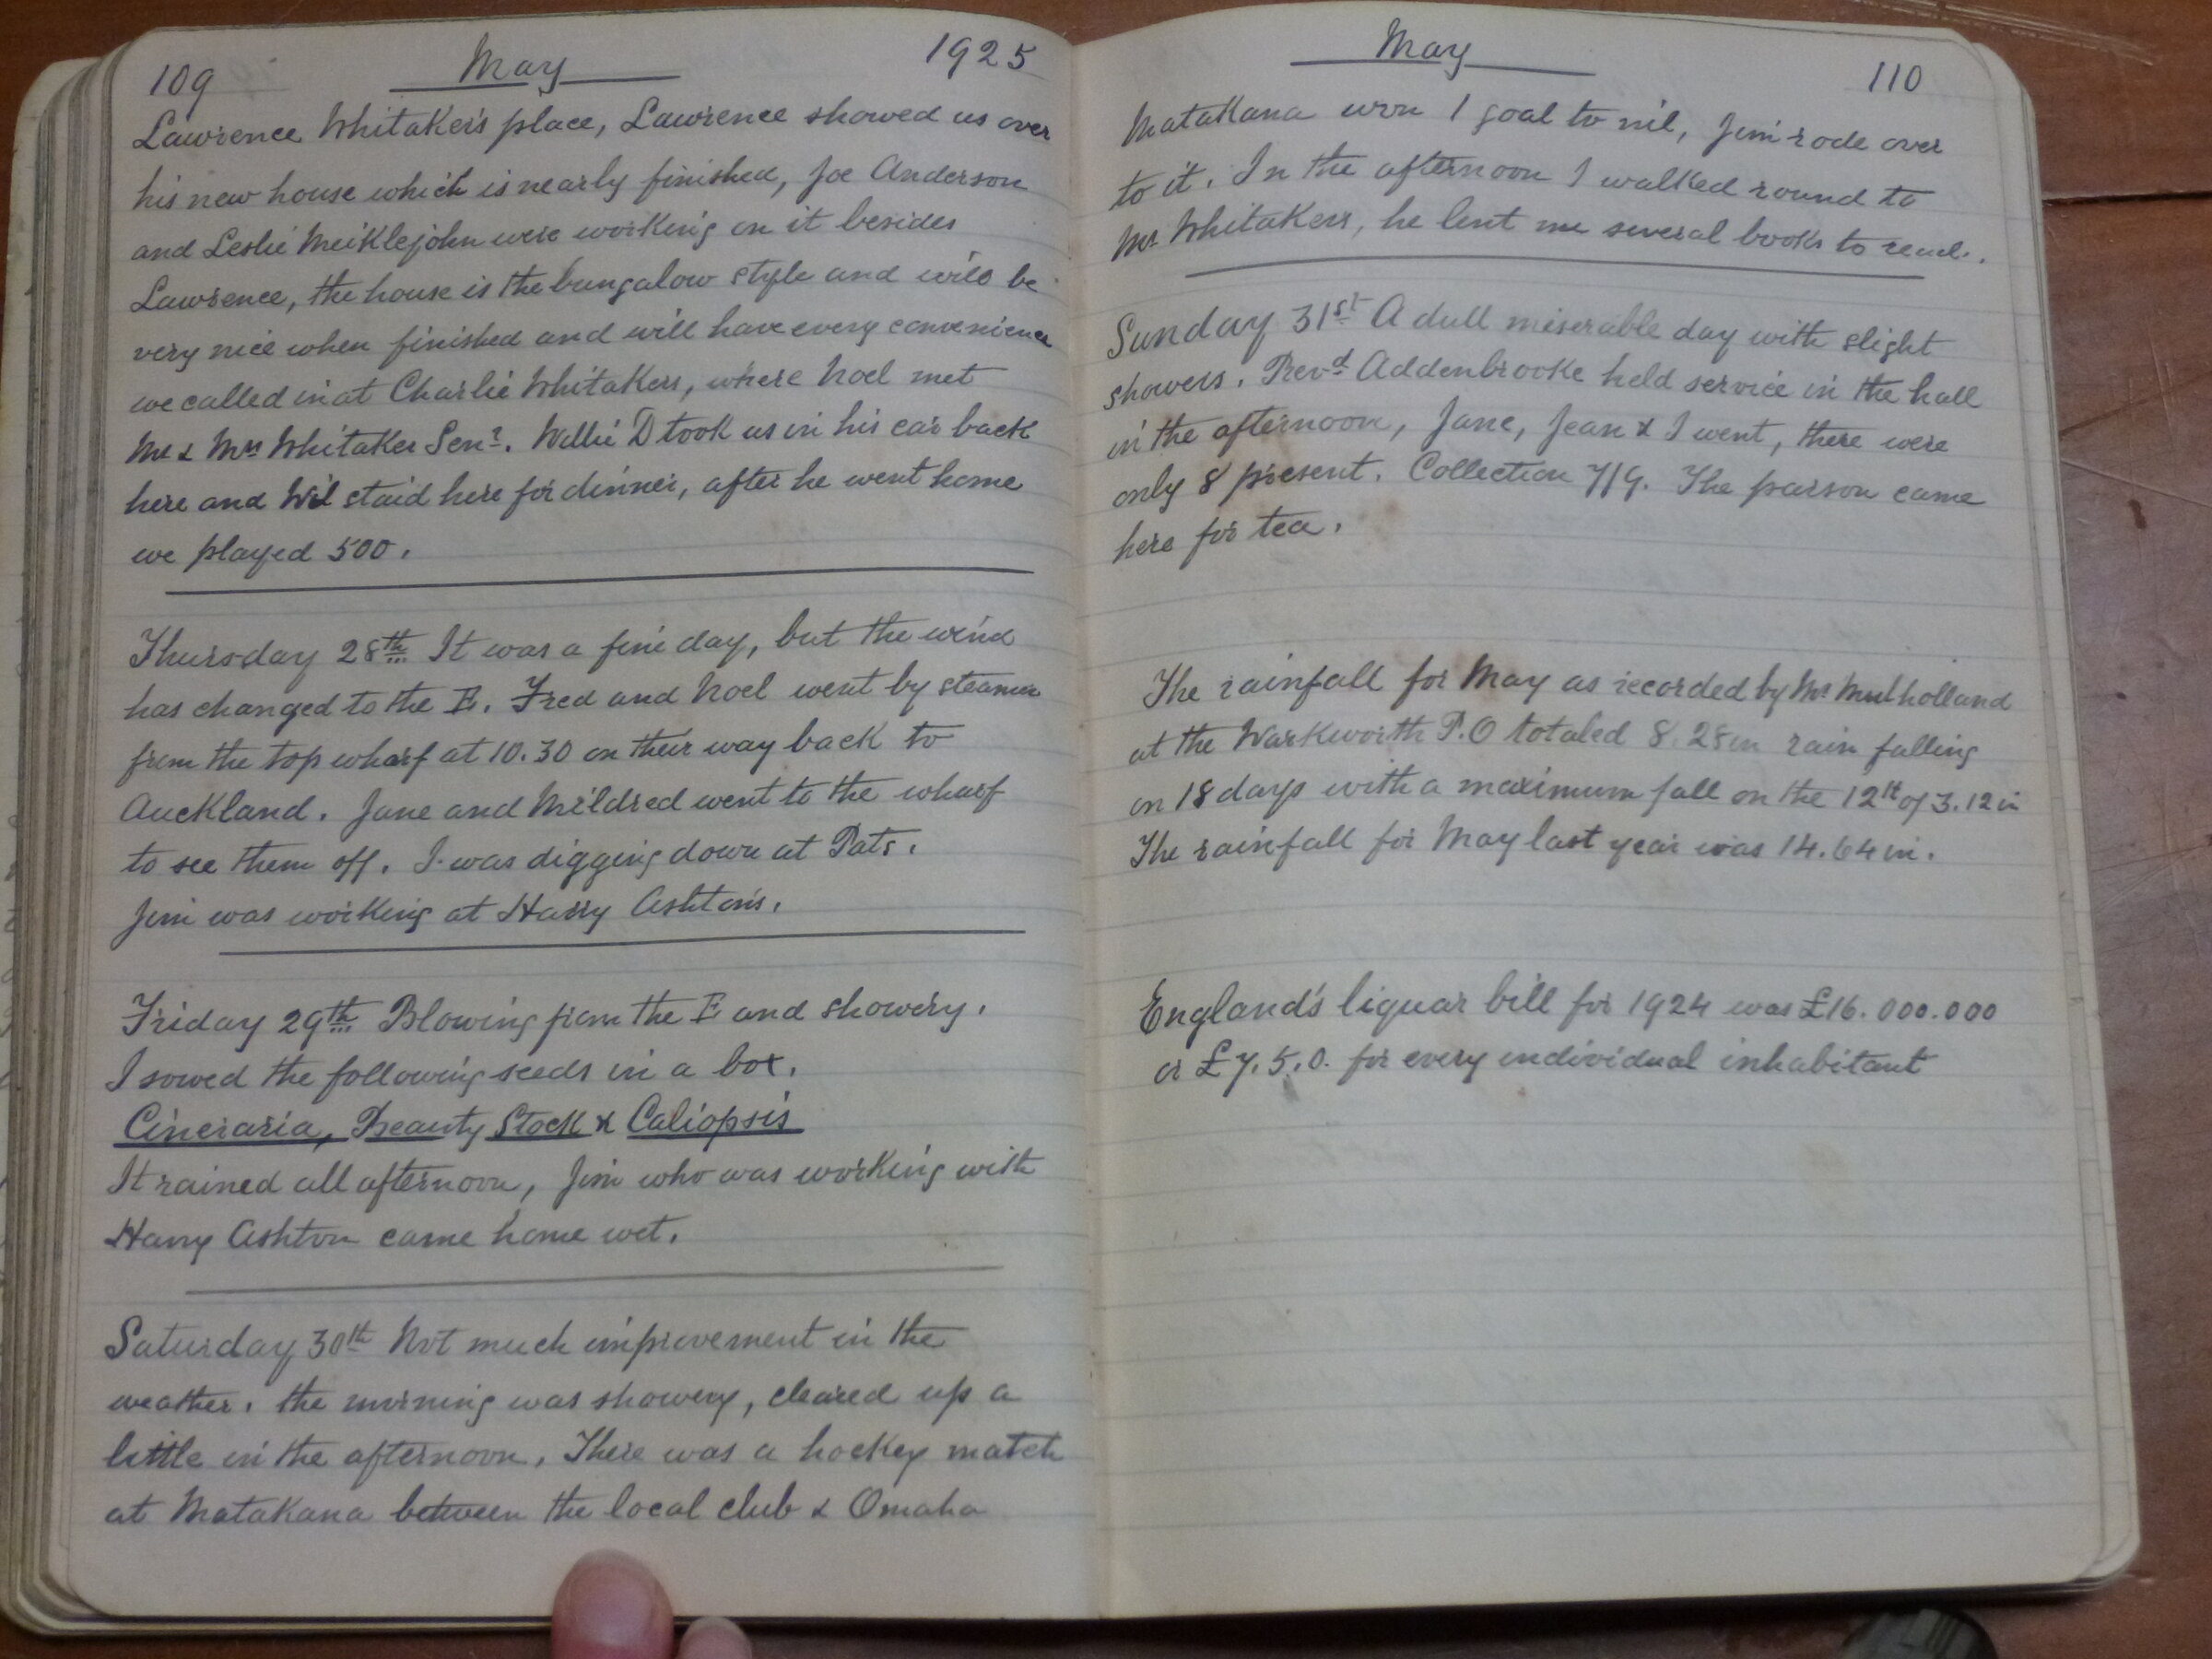 109 May 1925
Lawrence Whitaker's place, Lawrence showed us over
his new house which is nearly finished, Joe Anderson
and Leslie Meiklejohn were working on it besides
Lawrence, the house is the bungalow style and will be
very nice when finished and will have every convenience
we called in at Charlie Whitakers, where Noel met
Mr & Mrs Whitaker Senr. Willie D took us in his car back
here and Wil staid here for dinner, after he went home
we played 500.
Thursday 28th It was a fine day, but the wind
has changed to the E. Fred and Noel went by steamer
from the top wharf at 10.30 on their way back to
Auckland. Jane and Mildred went to the wharf
to see them off. I was digging down at Pats.
Jim was working at Harry Ashton's.
Friday 29th Blowing from the E and showery.
I sowed the following seeds in a box.
Cineraria, Beauty Stock & Caliopsis
It rained all afternoon, Jim who was working with
Harry Ashton came home wet.
Saturday 30th Not much improvement in the
weather. the morning was showery, cleared up a
little in the afternoon. There was a hockey match
at Matakana between the local club & Omaha
May 110
Matakana won 1 goal to nil, Jim rode over
to it. In the afternoon I walked round to
Mr Whitakers, he lent me several books to read.
Sunday 31st A dull miserable day with slight
showers. Revd Addenbrooke held service in the hall
in the afternoon, Jane, Jean & I went, there were
only 8 present. Collection 7/9. The parson came
here for tea.
The rainfall for May as recorded by Mr Mulholland
at the Warkworth P.O totaled 8.28in rain falling
on 18 days with a maximum fall on the 12th of 3.12in
The rainfall for May last year was 14.64in.
England's liquar bill for 1924 was £16.000.000
or £7.5.0. for every individual inhabitant